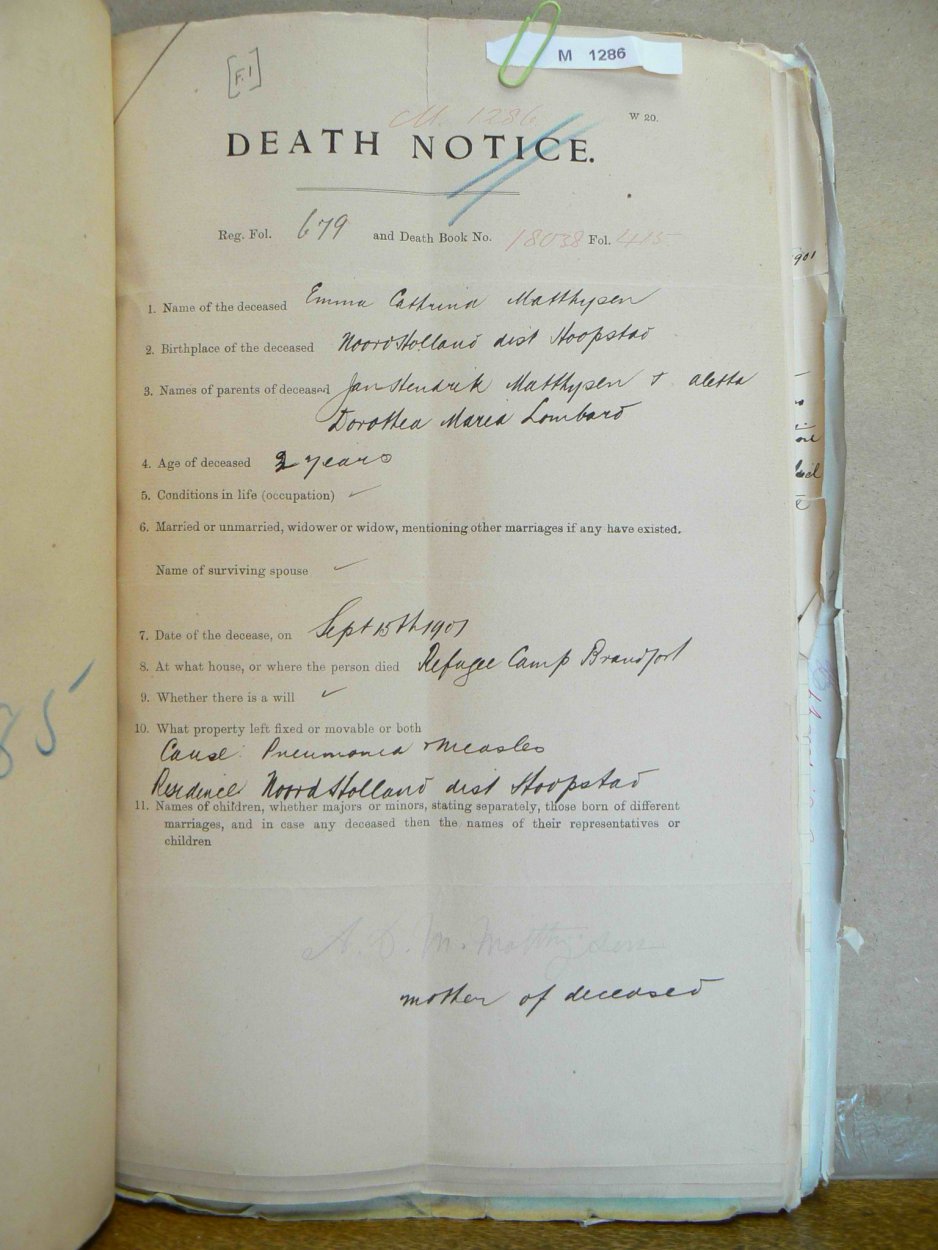 M 1286
[F.1]
M. 1286
W 20.
DEATH NOTICE.
Reg. Fol. 679 and Death Book No. 18038 Fol. 415
1. Name of the deceased Emma Cathrina Matthysen
2. Birthplace of the deceased Noord Holland dist Hoopstad
3. Names of parents of deceased Jan Hendrik Matthysen + Aletta
Dorothea Maria Lombard
4. Age of deceased 2 years
5. Conditions in life (occupation) ✓
6. Married or unmarried, widower or widow, mentioning other marriages if any have existed.
Name of surviving spouse ✓
7. Date of the decease, on Sept 15th 1901
8. At what house, or where the person died Refugee Camp Brandfort
9. Whether there is a will ✓
10. What property left fixed or movable or both
Cause: Pneumonia + Measles
Residence Noord Holland dist Hoopstad
11. Names of children, whether majors or minors, stating separately, those born of different
marriages, and in case any deceased then the names of their representatives or
children
A. D. M. Matthysen
mother of deceased
85
901